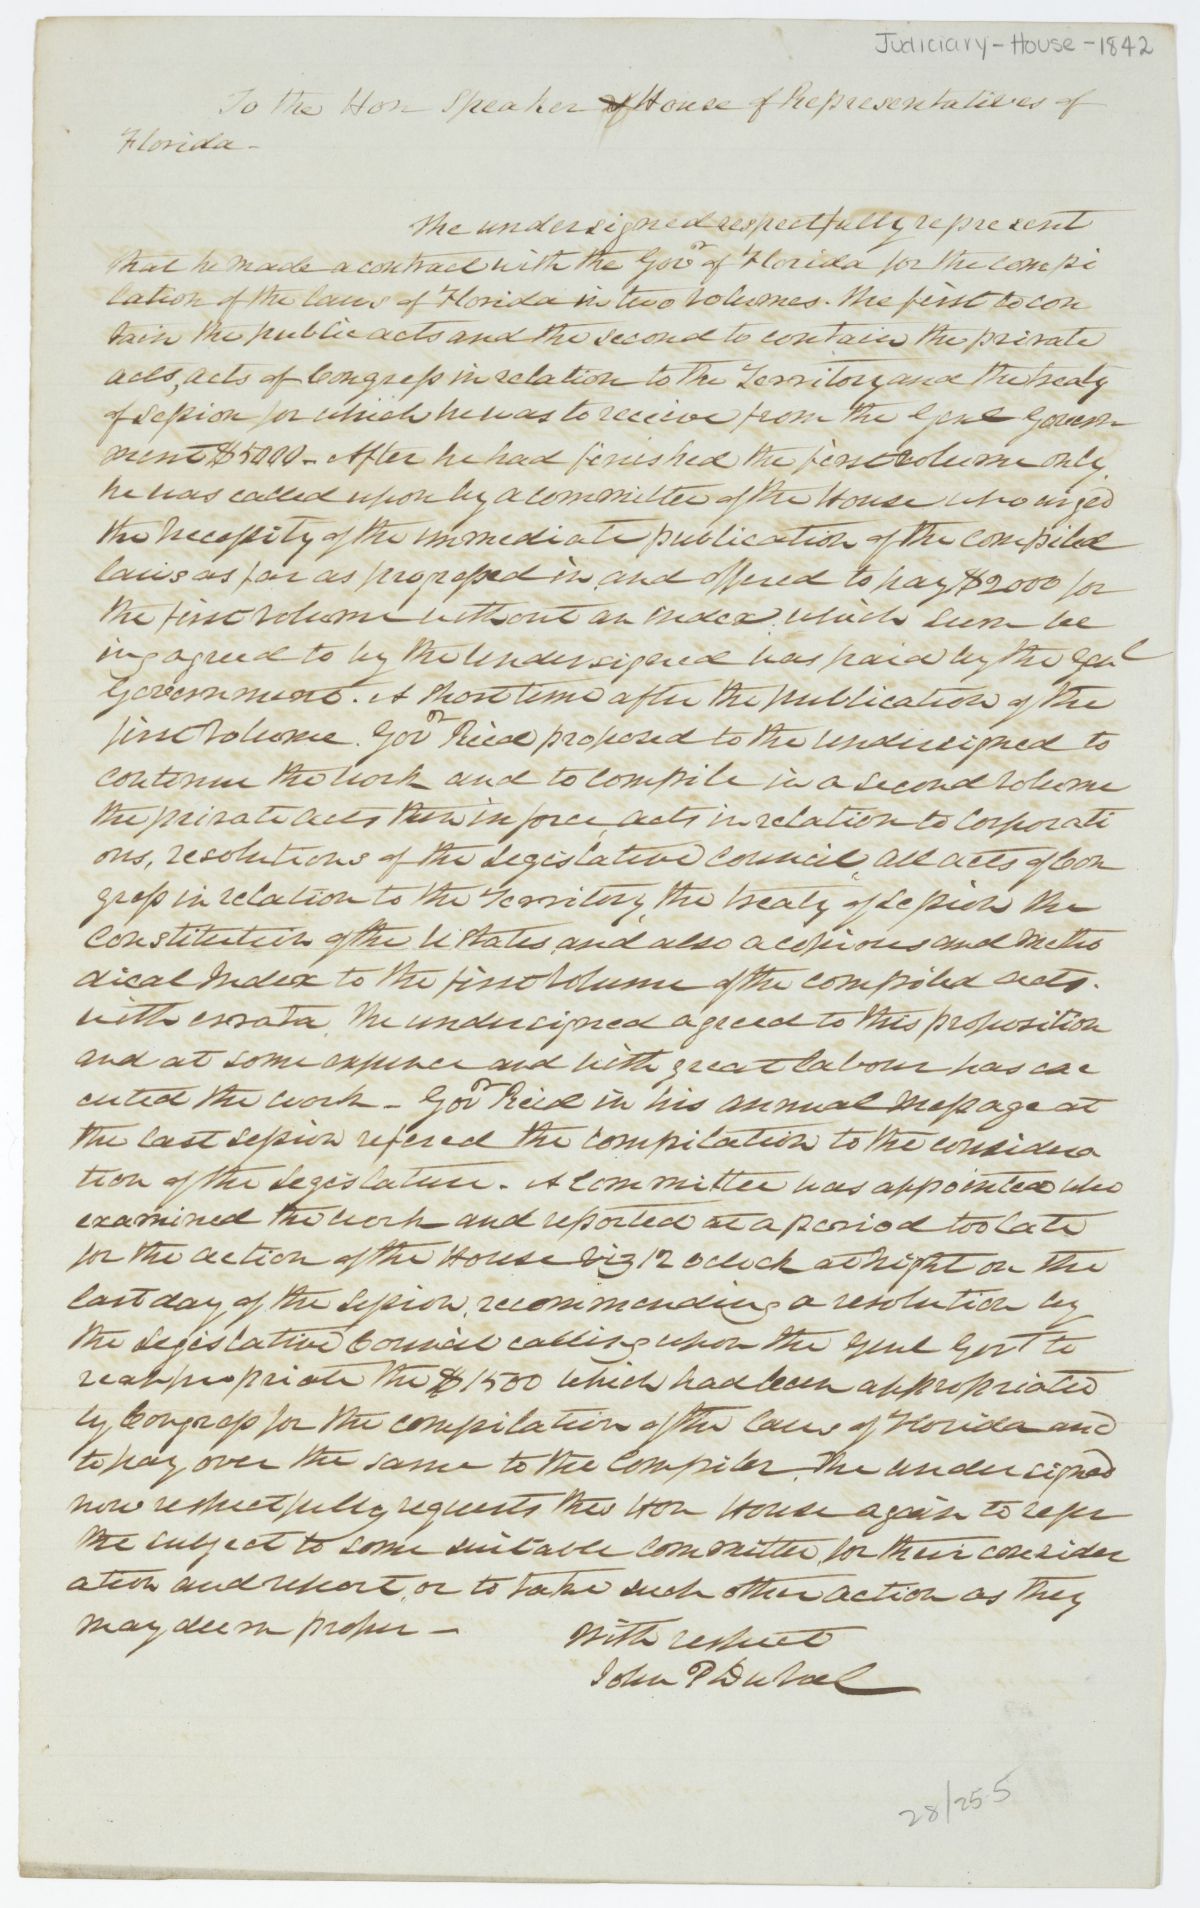 Judiciary - House - 1842
To the Hon Speaker of House of Representatives of
Florida -
The undersigned respectfully represent
that he made a contract with the Govr of Florida for the compi
lation of the laws of Florida in two volumes. The first to con
tain the public acts and the second to contain the private
acts, acts of Congress in relation to the Territory and the treaty
of Session for which he was to recieve from the Genl Govern
ment $5000 - After he had finished the first volume only,
he was called upon by a committee of the House who urged
the necessity of the immediate publication of the compiled
laws as far as progressed in and offered to pay $2000 for
the first volume without an index. which sum be
ing agreed to by the undersigned was paid by the Genl
Government. A short time after the publication of the
first volume. Govr Reed proposed to the undersigned to
continue the work and to compile in a second volume
the private acts then in force, acts in relation to Corporati
ons, resolutions of the Legislative Council, all acts of Con
gress in relation to the Territory, the treaty of Session the
Constitution of the U States, and also a copious and metho
dical Index to the first volume of the compiled acts.
with errata. The undersigned agreed to this proposition
and at some expence and with great labour has exe
cuted the work - Govr Reed in his annual message at
the last session refered the compilation to the considera
tion of the Legislature. A Committee was appointed who
examined the work and reported at a period too late
for the action of the House viz 12 oclock at night on the
last day of the session, recommending a resolution by
the Legislative Council calling upon the Genl Govt to
reappropriate the $1500 which had been appropriated
by Congress for the compilation of the laws of Florida and
to pay over the same to the Compiler. The undersigned
now respectfully requests the Hon House again to refer
the subject to some suitable committee, for their consider
ation and report, or to take such other action as they
may deem proper -
With respect
John P DuVal
28/255